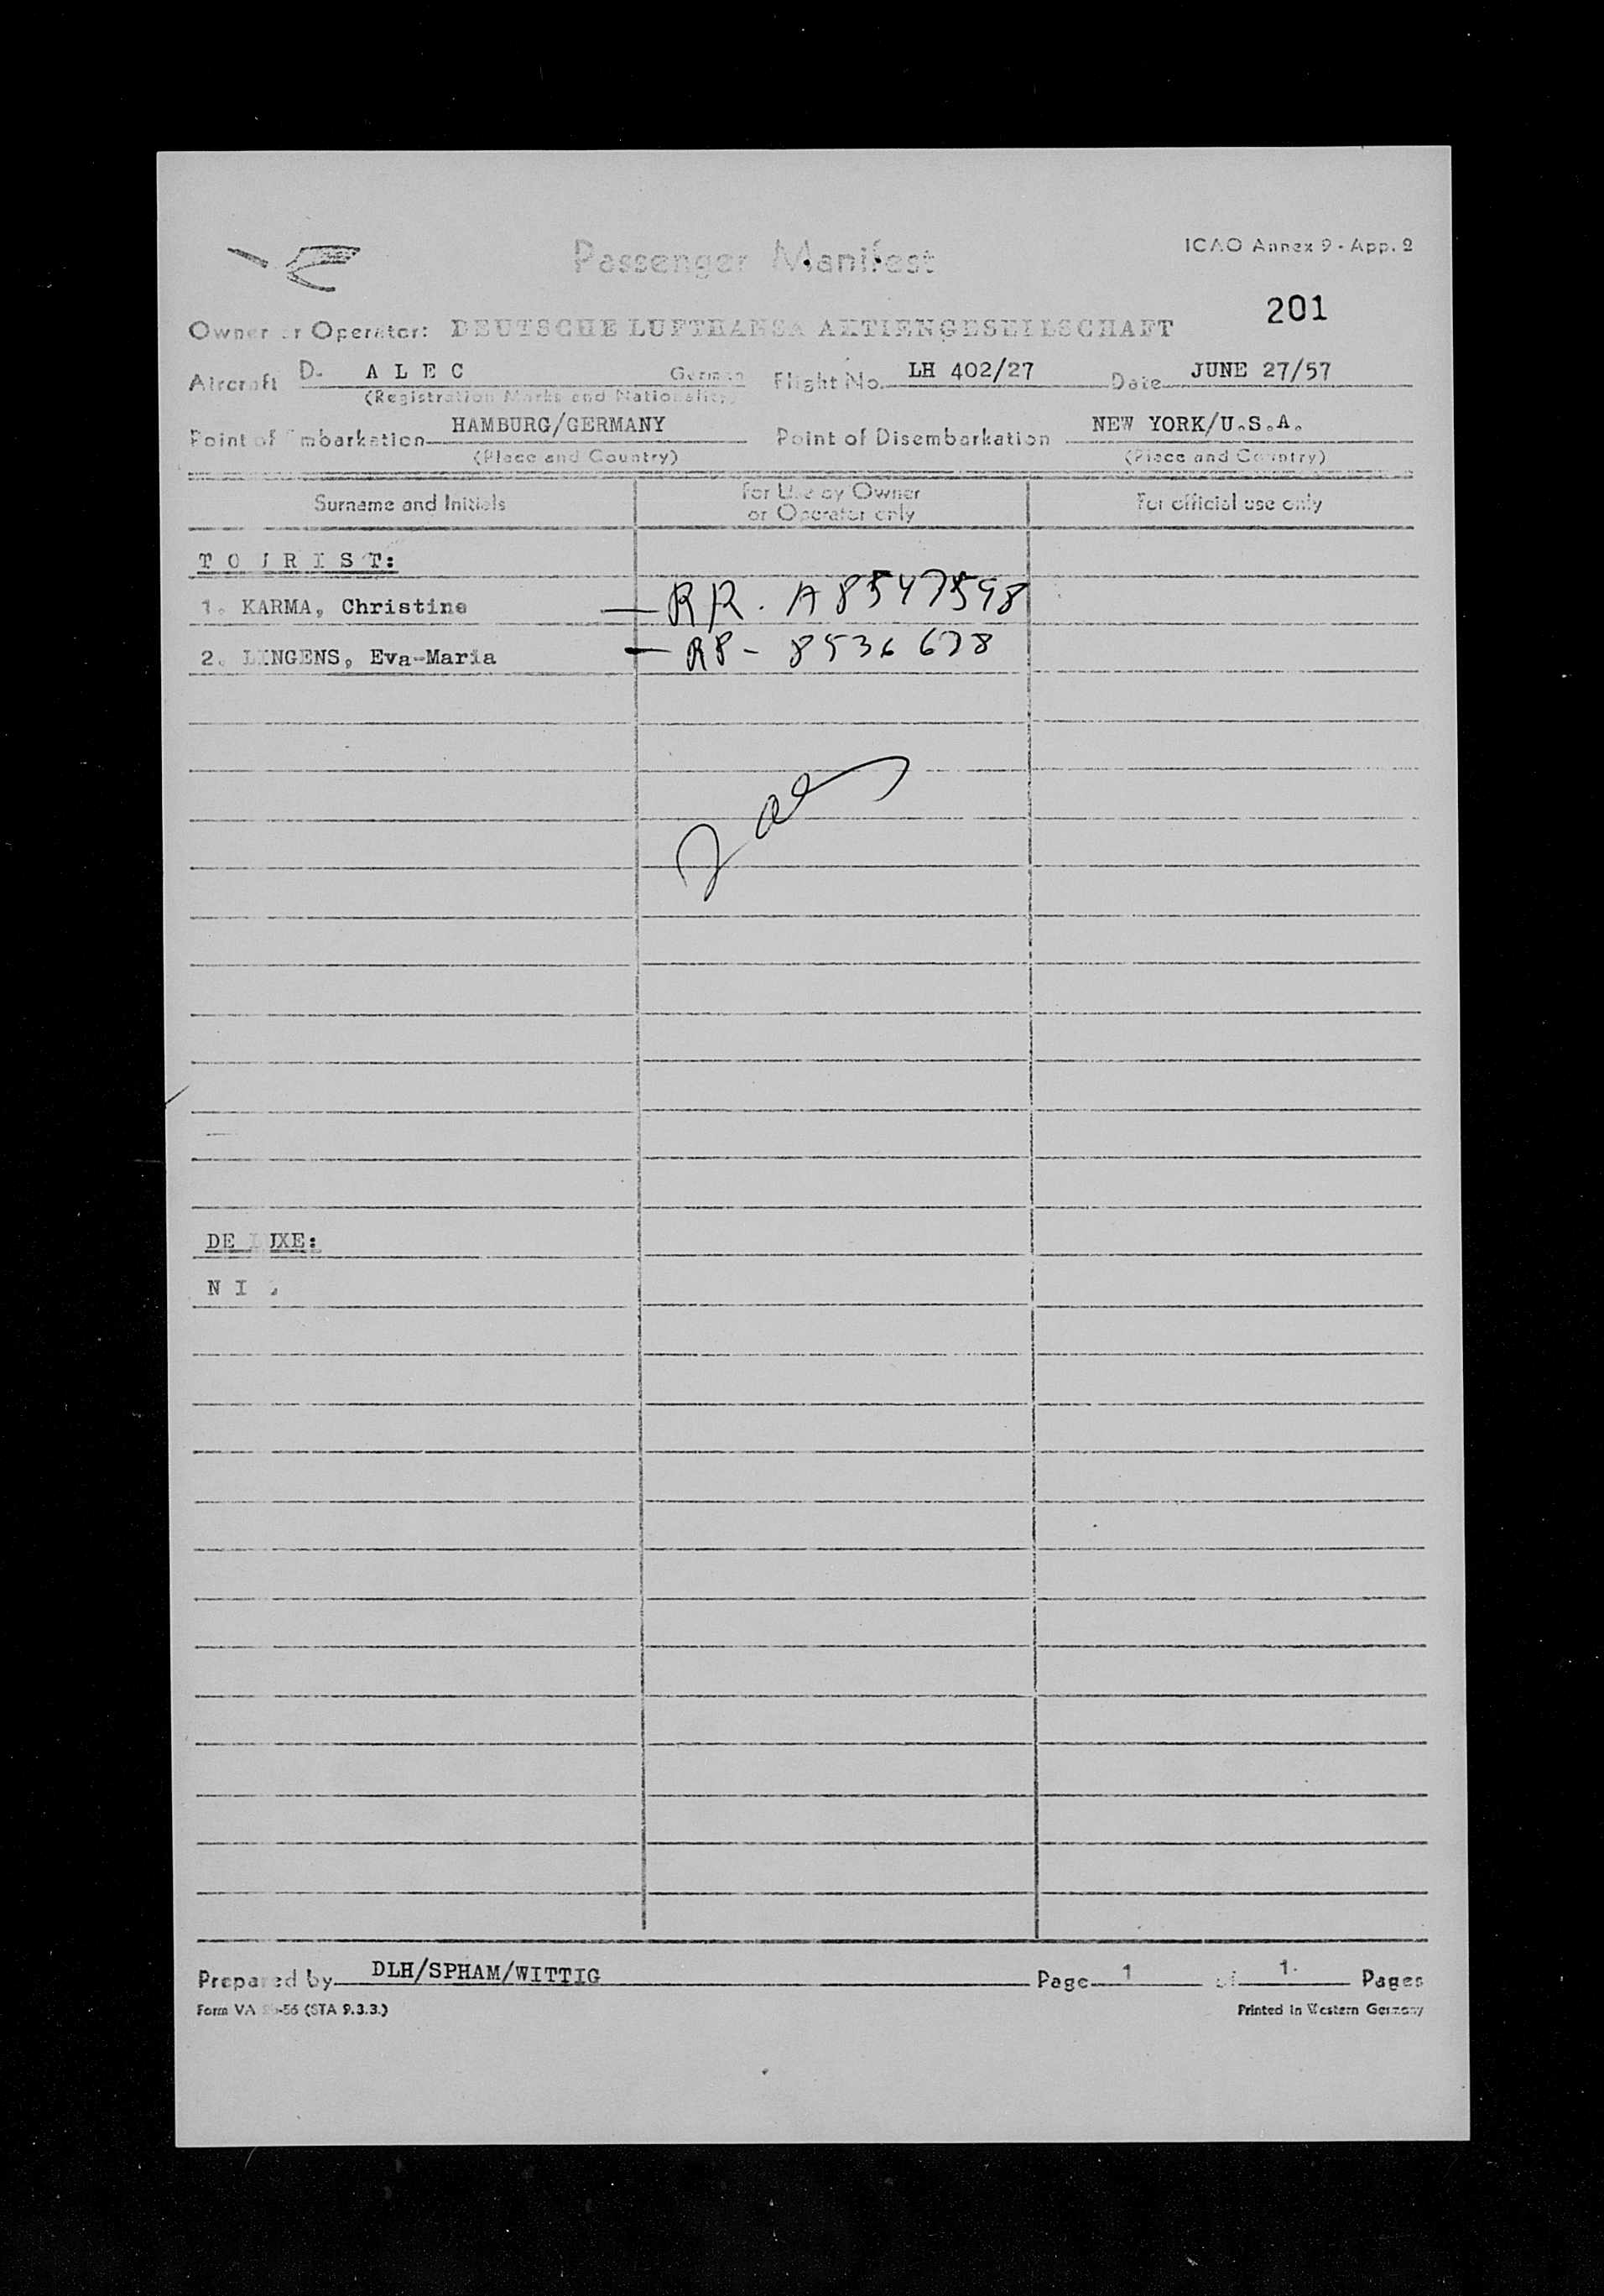 Passenger Manifest
ICAO Annex 9 - App. 2
201
Owner or Operator: DEUTSCHE LUFTHANSA AKTIENGESELLSCHAFT
Aircraft D- A L E C German Flight No. LH 402/27 Date JUNE 27/57
(Registration Marks and Nationality)
Point of Embarkation HAMBURG/GERMANY Point of Disembarkation NEW YORK/U.S.A.
(Place and Country) (Place and Country)
Surname and Initials For Use by Owner or Operator only For official use only
T O U R I S T:
1. KARMA, Christine — RR. A8547598
2. LINGENS, Eva-Maria — RP - 8536678
DE LUXE:
N I L
Prepared by DLH/SPHAM/WITTIG Page 1 of 1. Pages
Form VA -56 (STA 9.3.3.) Printed in Western Germany